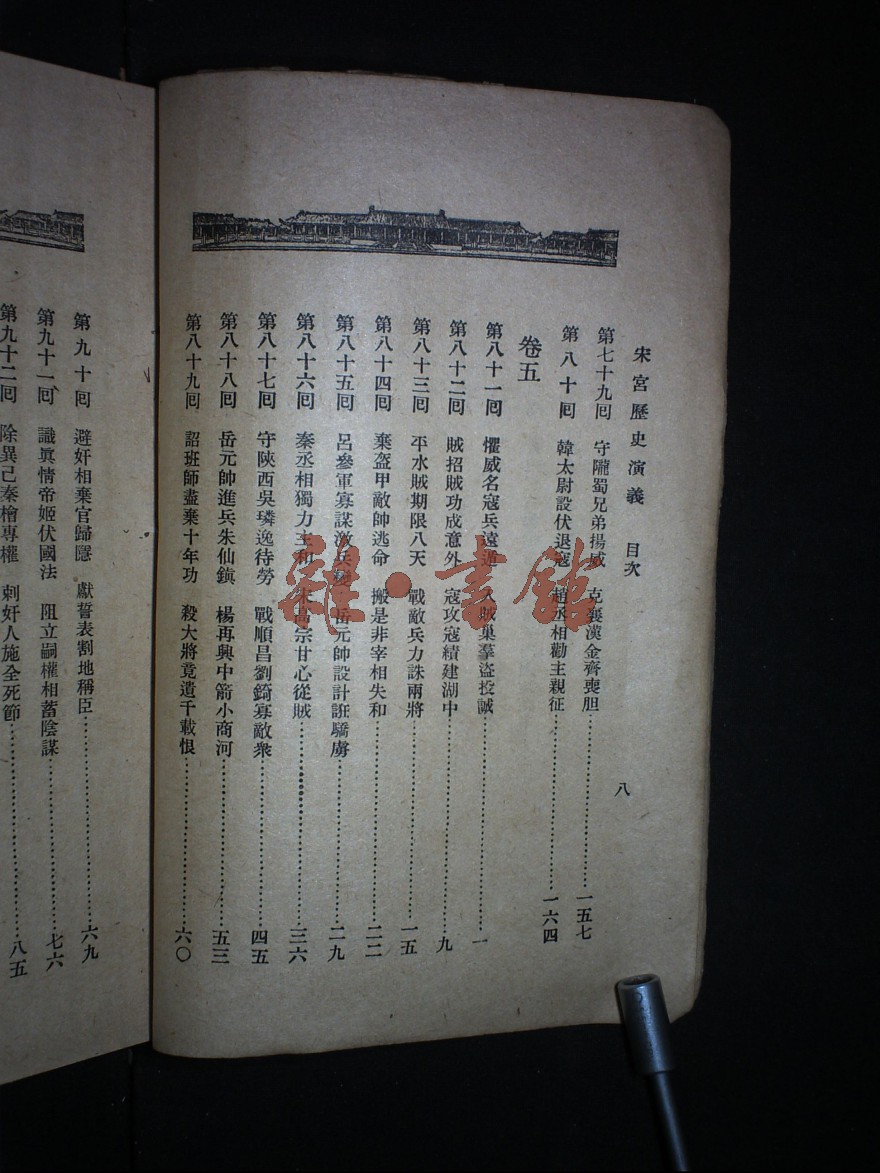 宋宮歷史演義 目次 八
第七十九回 守隴蜀兄弟揚威 克襄漢金齊喪胆 一五七
第八十回 韓太尉設伏退寇 趙丞相勸主親征 一六四
卷五
第八十一回 懼威名寇兵遠遁 入賊巢羣盜投誠 一
第八十二回 賊招賊功成意外 寇攻寇績建湖中 九
第八十三回 平水賊期限八天 戰敵兵力誅兩將 一五
第八十四回 棄盔甲敵帥逃命 搬是非宰相失和 二二
第八十五回 呂參軍寡謀激兵變 岳元帥設計誑驕虜 二九
第八十六回 秦丞相獨力主和 宋高宗甘心從賊 三六
第八十七回 守陝西吳璘逸待勞 戰順昌劉錡寡敵衆 四五
第八十八回 岳元帥進兵朱仙鎮 楊再興中箭小商河 五三
第八十九回 詔班師盡棄十年功 殺大將竟遺千載恨 六〇
第九十回 避奸相棄官歸隱 獻誓表割地稱臣 六九
第九十一回 識眞情帝姬伏國法 阻立嗣權相蓄陰謀 七六
第九十二回 除異己秦檜專權 刺奸人施全死節 八五
雜·書館